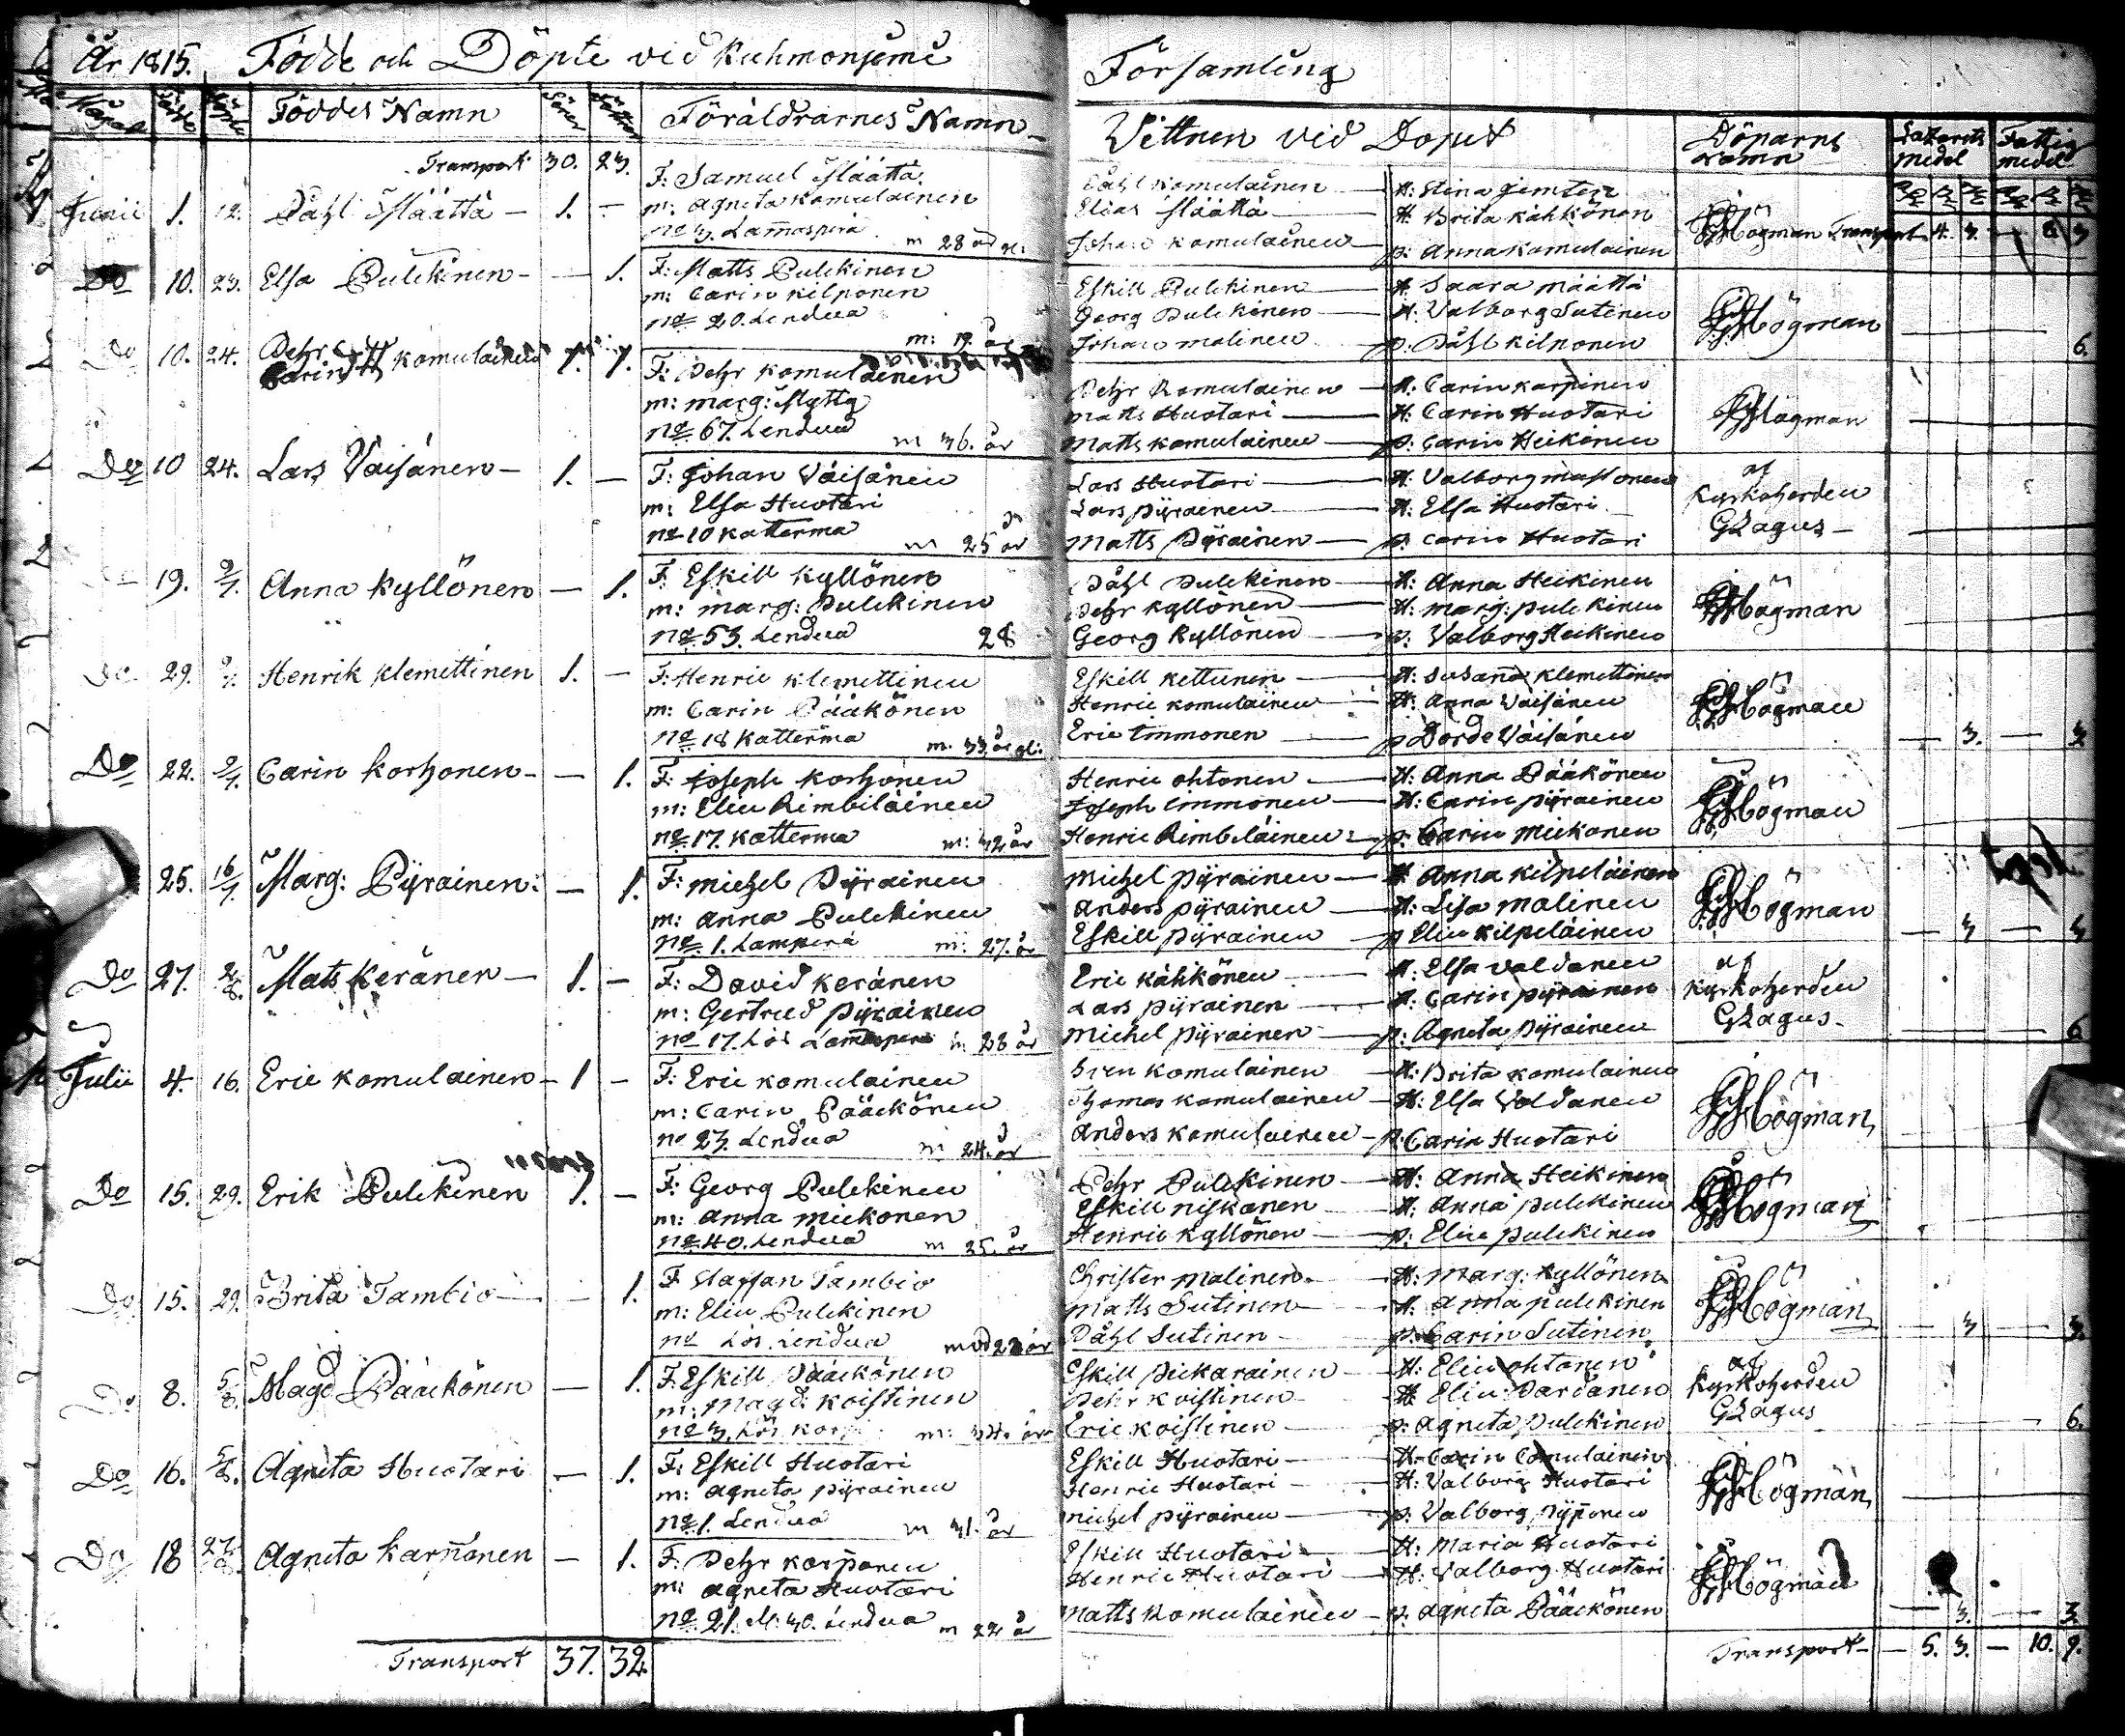 År 1815. Födde och Döpte vid Kuhmoniemi Församling
Månad Födde Döpte Föddes Namn Söner Döttrar Föräldrarnes Namn Vittnen vid Dopet Döparns namn Lazaretts medel Fattig medel
Transport 30. 23.
Junii 1. 12. Påhl Määttä 1. —
F: Samuel Määttä
m: Agneta Komulainen
No 3. Lammaspirä m 28 år
Påhl Komulainen — H: Stina
Elias Määttä — H: Brita Kähkönen
Johan Komulainen — p: Anna Komulainen
Högman Transport 4. 3.
Do 10. 23. Elsa Pulckinen — 1.
F: Matts Pulckinen
m: Carin Kilponen
No 20. Lendua
Eskill Pulckinen — H: Saara Määttä
Georg Pulckinen — H: Valborg Sutinen
Johan Malinen — p: Påhl Kilponen
Högman 6.
Do 10. 24. Pehr Carin Komulainen 1. 1.
F: Pehr Komulainen
m: Marg: Mytty
No 67. Lendua m 36. år
Pehr Komulainen — H: Carin Karpinen
Matts Huotari — H: Carin Huotari
Matts Komulainen — p: Carin Heikinen
Högman
Do 10 24. Lars Väisänen — 1. —
F: Johan Väisänen
m: Elsa Huotari
No 10 Katterma m 25 år
Lars Huotari — H: Valborg Mustonen
Lars Pyrainen — H: Elsa Huotari
Matts Pyrainen — p: Carin Huotari
af Kyrkoherden Gzagus
19. 9/7. Anna Kyllönen — 1.
F: Eskill Kyllönen
m: Marg: Pulckinen
No 53. Lendua 28
Påhl Pulckinen — H: Anna Heikinen
Pehr Kyllönen — H: Marg: Pulckinen
Georg Kyllönen — p: Valborg Heikinen
Högman
Do 29. 9/7. Henrik Klemettinen 1. —
F: Henric Klemettinen
m: Carin Pääkönen
No 18 Katterma m. 33 år
Eskill Kettunen — H: Susana Klemettinen
Henric Komulainen — H: Anna Väisänen
Eric Immonen — p: Dorde Väisänen
Högman — 3. — 3
Do 22. 9/7. Carin Korhonen — 1.
F: Joseph Korhonen
m: Elin Rimbiläinen
No 17. Katterma m: 32 år
Henric Ohtonen — H: Anna Pääkönen
Joseph Immonen — H: Carin Pyrainen
Henric Rimbiläinen — p: Carin Mickonen
Högman
25. 16/7. Marg: Pyrainen — 1.
F: Michel Pyrainen
m: Anna Pulckinen
No 1. Lampirä m: 27. år
Michel Pyrainen — H: Anna Kilpeläinen
Anders Pyrainen — H: Lisa Malinen
Eskill Pyrainen — p: Elin Kilpeläinen
Högman — 3 — 3
Do 27. 2/8. Mats Keränen — 1. —
F: David Keränen
m: Gertrud Pyrainen
No 17. Lös Lammaspera m 28 år
Eric Kähkönen — H: Elsa Valdanen
Lars Pyrainen — H: Carin Pyrainen
Michel Pyrainen — p: Agneta Pyrainen
af Kyrkoherden Gzagus 6
Julii 4. 16. Eric Komulainen — 1 —
F: Eric Komulainen
m: Carin Pääckönen
No 23. Lendua m 24. år
Sven Komulainen — H: Brita Komulainen
Thomas Komulainen — H: Elsa Valdanen
Anders Komulainen — p: Carin Huotari
Högman
Do 15. 29. Erik Pulckinen 1. —
F: Georg Pulckinen
m: Anna Mickonen
No 40. Lendua m 35. år
Pehr Pulckinen — H: Anna Heikinen
Eskill Niskanen — H: Anna Pulckinen
Henric Kyllönen — p: Elin Pulckinen
Högman
Do 15. 29. Brita Tambio — 1.
F: Staffan Tambio
m: Elin Pulckinen
No Lös. Lendua mod 22 år
Christer Malinen — H: Marg: Kyllönen
Matts Sutinen — H: Anna Pulckinen
Påhl Sutinen — p: Carin Sutinen
Högman — 3 — 3.
Do 8. 5/8. Magd Pääckönen — 1.
F. Eskill Pääckönen
m: Magd: Koistinen
No 3. Lös m: 34. år
Eskill Pickarainen — H: Elin Ohtonen
Pehr Koistinen — H: Elin Pardanen
Eric Koistinen — p: Agneta Pulckinen
af Kyrkoherden Gzagus 6.
Do 16. 5/8. Agneta Huotari — 1.
F: Eskill Huotari
m: Agneta Pyrainen
No 1. Lendua m 31. år
Eskill Huotari — H: Carin Comulainen
Henric Huotari — H: Valborg Huotari
Michel Pyrainen — p: Valborg Pyponen
Högman
Do 18 27/8. Agneta Karponen — 1.
F: Pehr Karponen
m: Agneta Huotari
No 21. M. 30. Lendua m 22 år
Eskill Huotari — H: Maria Huotari
Henric Huotari — H: Valborg Huotari
Matts Komulainen — p: Agneta Pääckönen
Högman — 3. — 3.
Transport 37. 32. Transport — 5. 3. — 10. 9.